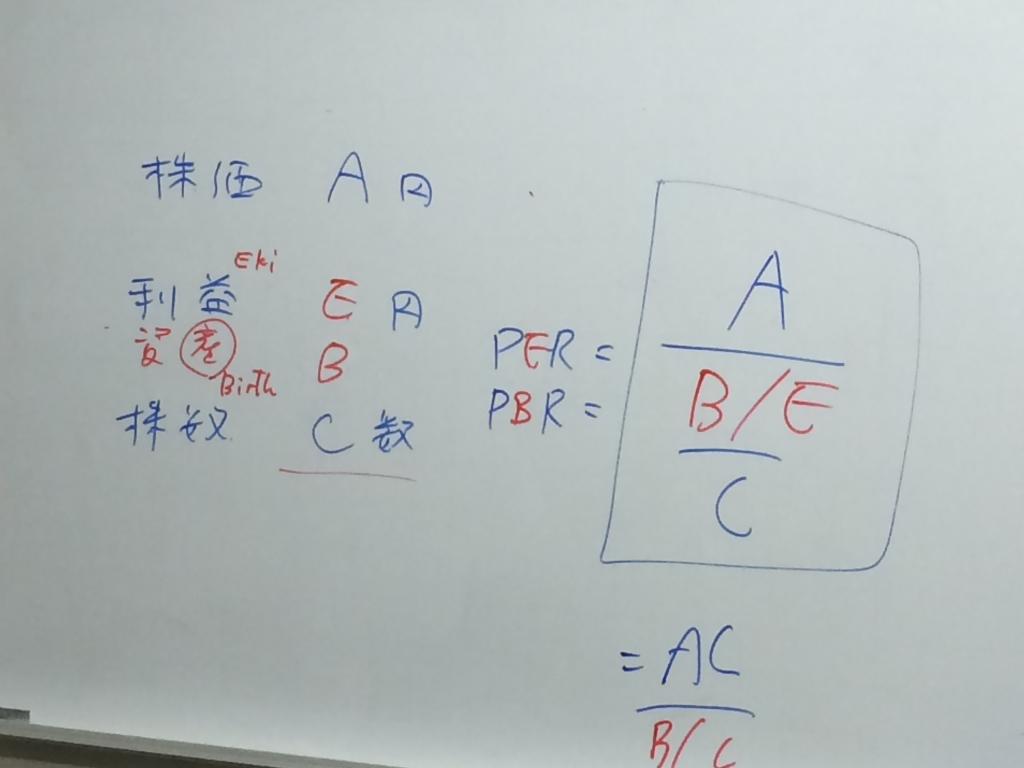 株価 A円
Eki
利益 E円
設産 B
Birth
株数 C数
PER =
PBR =
A
B/E
C
= AC
B/